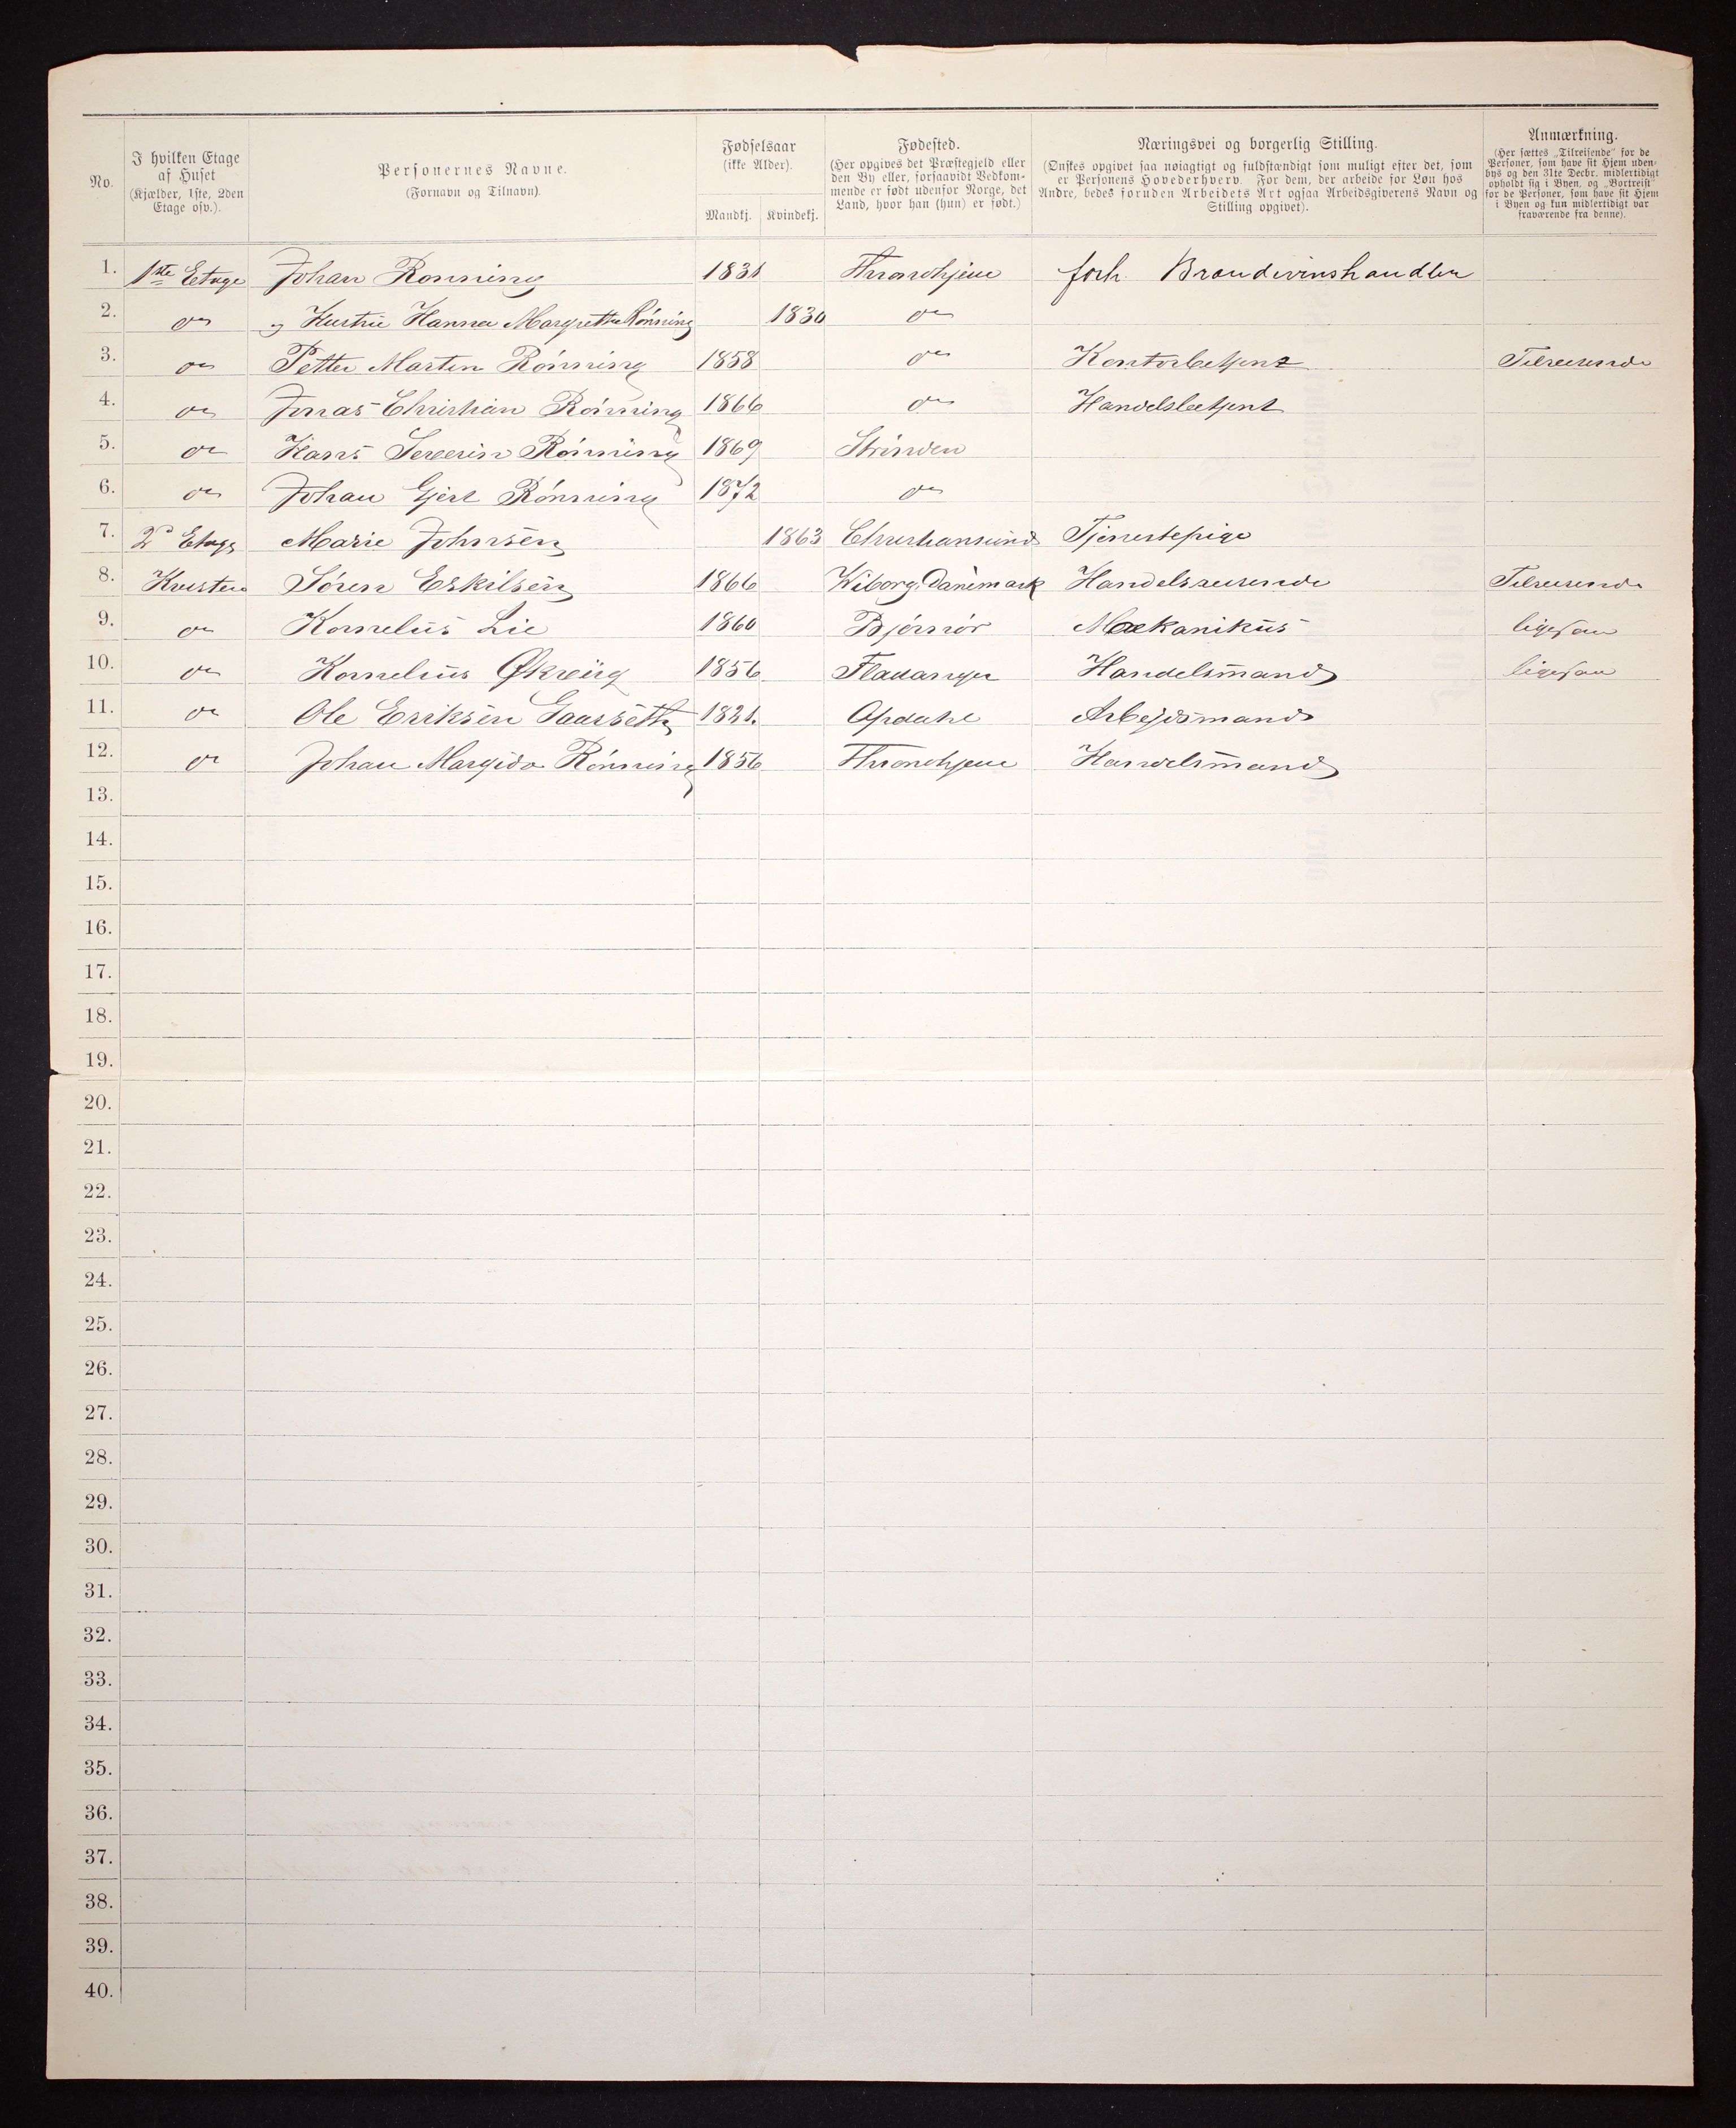 No.
I hvilken Etage
af Huset
(Kjælder, 1ste, 2den
Etage osv.).
Personernes Navne.
(Fornavn og Tilnavn).
Fødselsaar
(ikke Alder).
Mandkj. Kvindekj.
Fødested.
(Her opgives det Præstegjeld eller
den By eller, forsaavidt Vedkom-
mende er født udenfor Norge, det
Land, hvor han (hun) er født.)
Næringsvei og borgerlig Stilling.
(Ønskes opgivet saa nøiagtigt og fuldstændigt som muligt efter det, som
er Personens Hovederhverv. For dem, der arbeide for Løn hos
Andre, bedes foruden Arbeidets Art ogsaa Arbeidsgiverens Navn og
Stilling opgivet).
Anmærkning.
(Her sættes „Tilreisende" for de
Personer, som have sit Hjem uden-
bys og den 31te Decbr. midlertidigt
opholdt sig i Byen, og „Bortreist"
for de Personer, som have sit Hjem
i Byen og kun midlertidigt var
fraværende fra denne).
1. 1ste Etage Johan Ronning 1831 Throndhjem forh. Brændevinshandler
2. do Hustru Hanna Margrethe Rónning 1830 do
3. do Petter Marten Rónning 1858 do Kontorbetjent Tilreisende
4. do Jonas Christian Rónning 1866 do Handelsbetjent
5. do Hans Severin Rónning 1869 Strinden
6. do Johan Gjert Rónning 1872 do
7. 2d Etage Marie Johnsen 1863 Christiansund Tjenestepige
8. Kvisten Sóren Eskilsen 1866 Wiborg. Danemark Handelsreisende Tilreisende
9. do Kornelius Lie 1860 Bjórnór Mekanikus ligesaa
10. do Kornelius Økreüg 1856 Fladanger Handelsmand ligesaa
11. do Ole Eriksen Gaarseth 1821. Opdahl Arbejdsmand
12. do Johan Margido Rónning 1856 Throndhjem Handelsmand
13.
14.
15.
16.
17.
18.
19.
20.
21.
22.
23.
24.
25.
26.
27.
28.
29.
30.
31.
32.
33.
34.
35.
36.
37.
38.
39.
40.